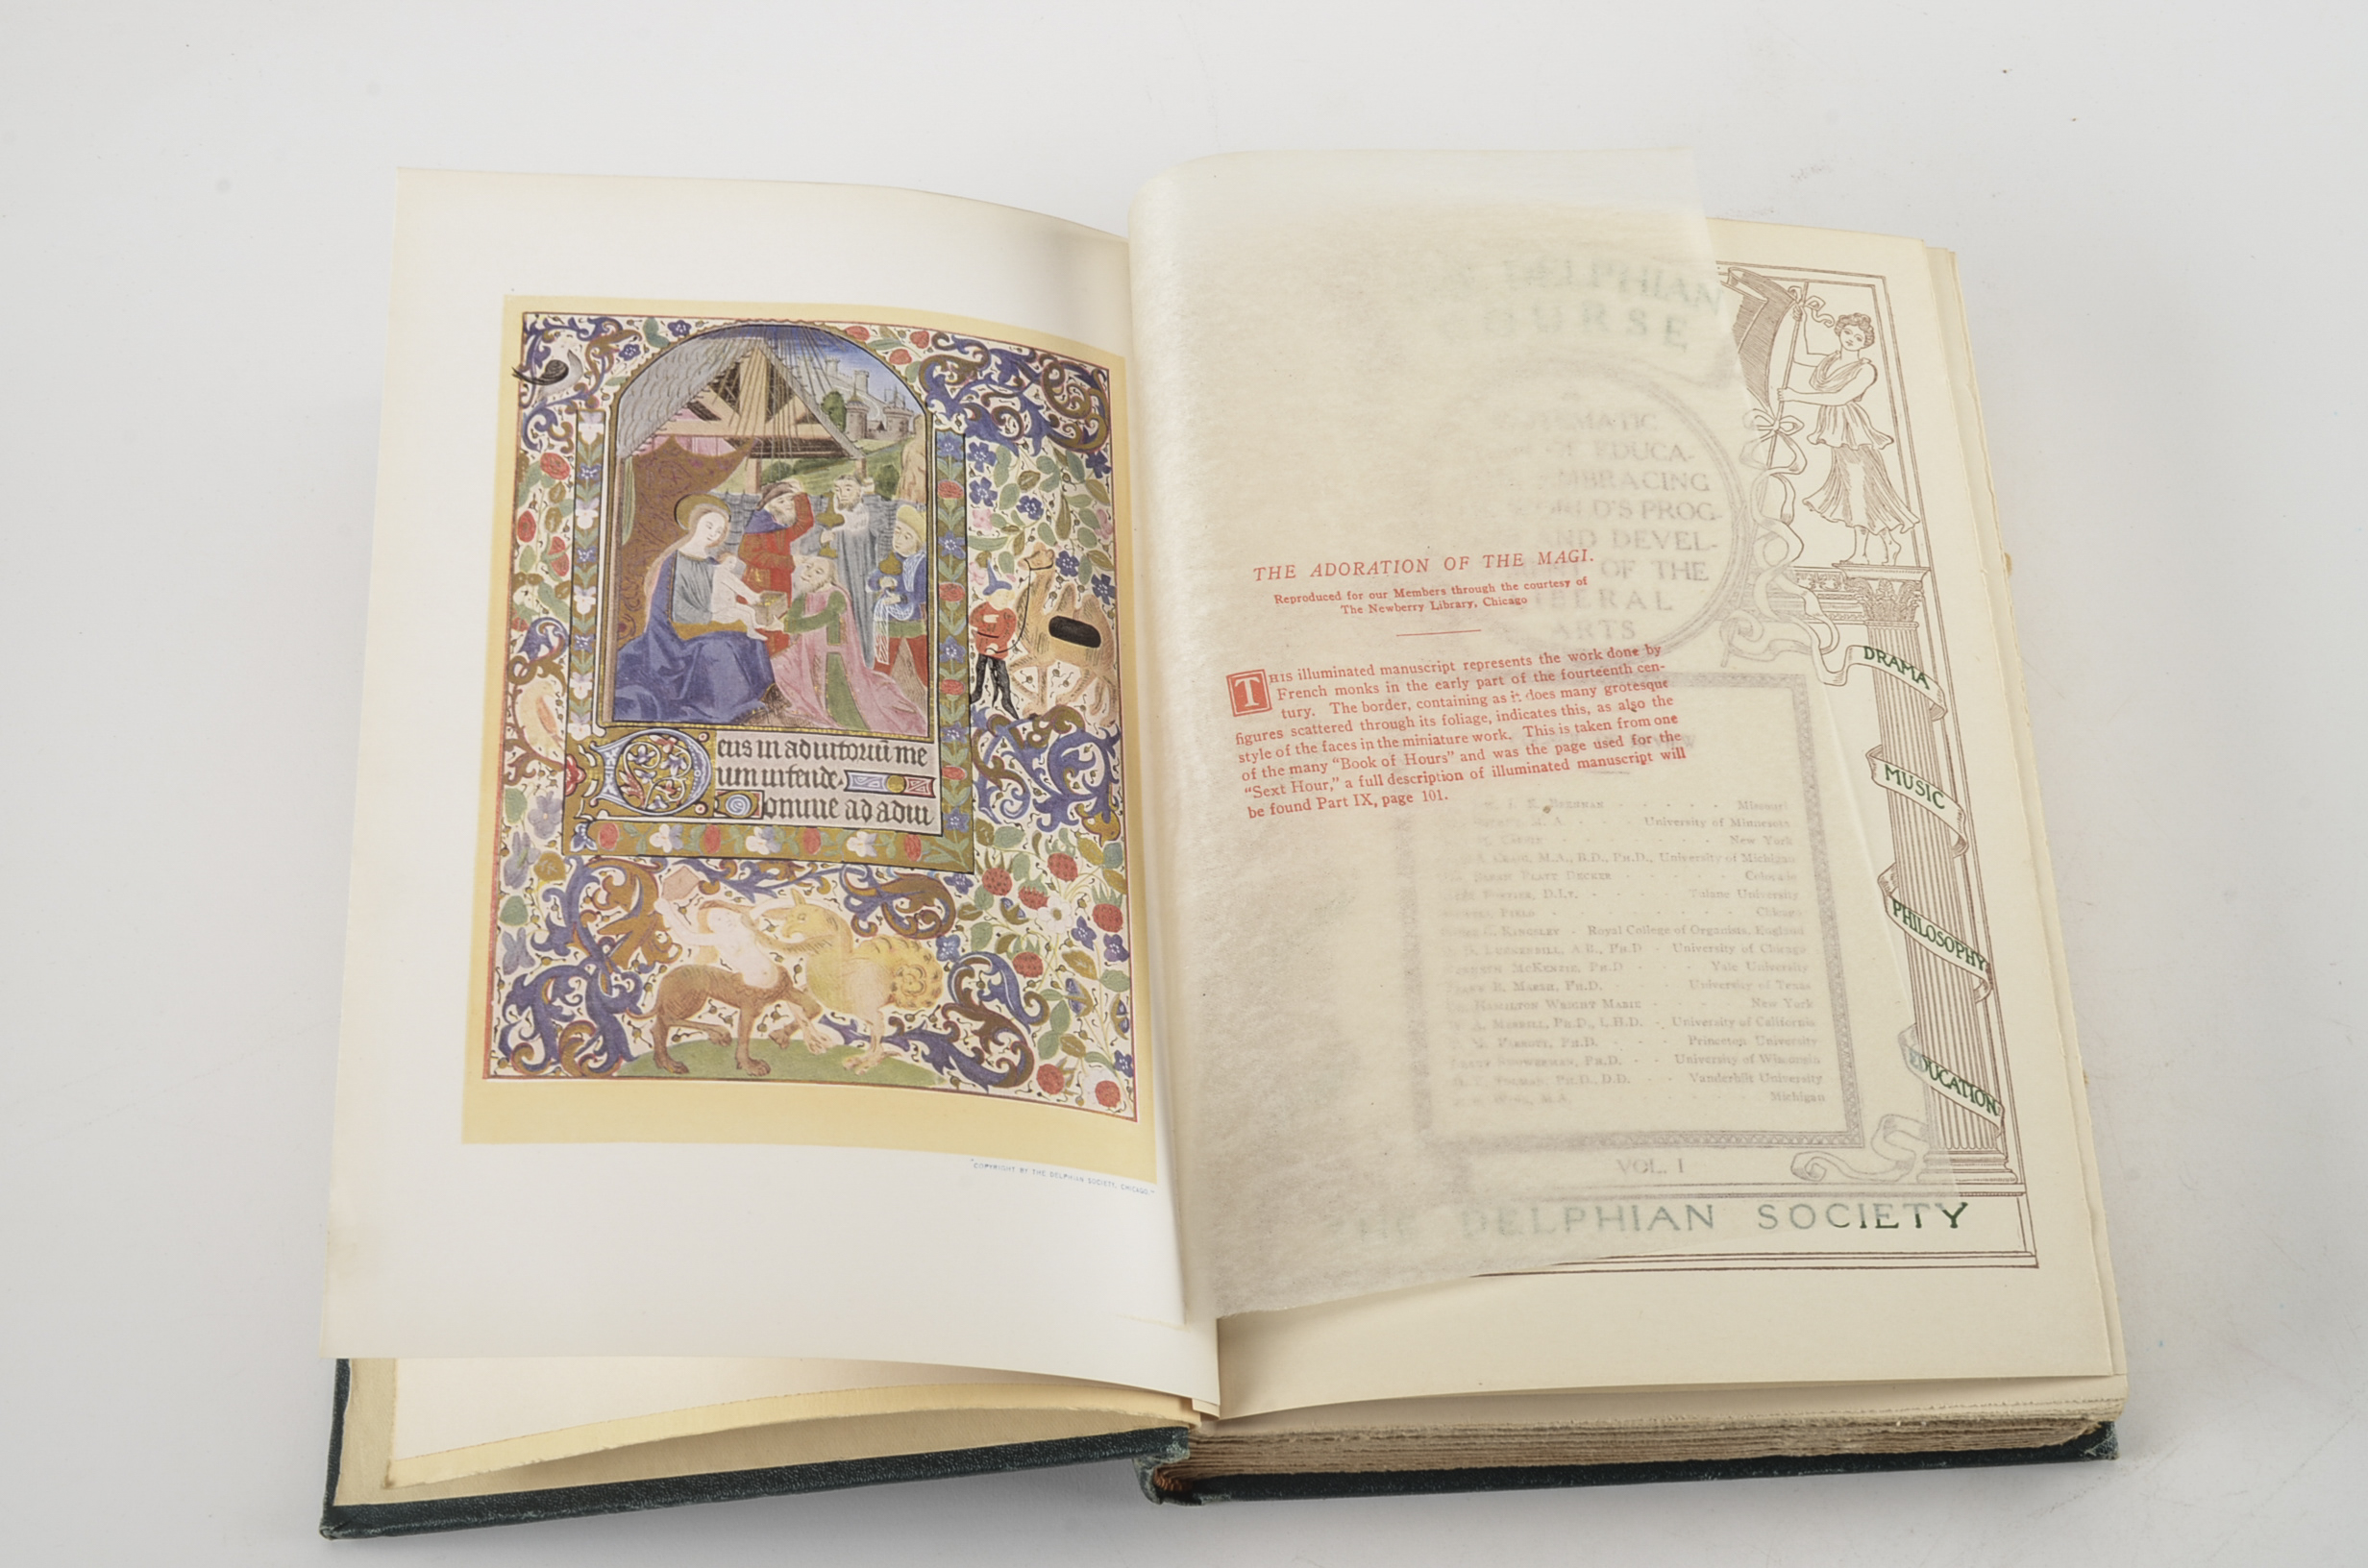 eus in adiutoriū me
um intende
omine ad adiu
"COPYRIGHT BY THE DELPHIAN SOCIETY, CHICAGO."
THE ADORATION OF THE MAGI.
Reproduced for our Members through the courtesy of
The Newberry Library, Chicago
THIS illuminated manuscript represents the work done by
French monks in the early part of the fourteenth cen-
tury. The border, containing as it does many grotesque
figures scattered through its foliage, indicates this, as also the
style of the faces in the miniature work. This is taken from one
of the many "Book of Hours" and was the page used for the
"Sext Hour," a full description of illuminated manuscript will
be found Part IX, page 101.
DELPHIAN
COURSE
EDUCA-
EMBRACING
WORLD'S PROG-
AND DEVEL-
OF THE
LIBERAL
ARTS
Missouri
M.A. University of Minnesota
New York
M.A., B.D., PH.D., University of Michigan
PLATT DECKER Colorado
D.LT. Tulane University
FIELD Chicago
KINGSLEY Royal College of Organists, England
A.B., PH.D University of Chicago
MCKENZIE, PH.D Yale University
MARSH, PH.D. University of Texas
HAMILTON WRIGHT MABIE New York
PH.D., L.H.D. University of California
PH.D. Princeton University
PH.D. University of Wisconsin
PH.D., D.D. Vanderbilt University
M.A. Michigan
VOL. I
DELPHIAN SOCIETY
DRAMA
MUSIC
PHILOSOPHY
EDUCATION